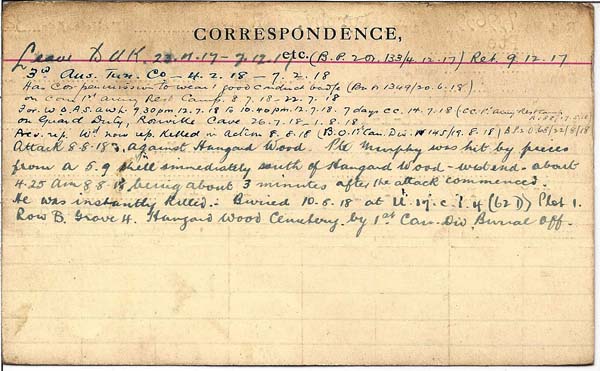 CORRESPONDENCE,
etc.
Leave to U.K. 23.11.17 - 7.12.17 (B.P. 2 Or. 133/4.12.17) Ret. 9.12.17
3rd Aus. Tun. Co - 4.2.18 - 7.2.18
Has Co's permission to wear 1 good conduct badge (Bn A 1349/20.6.18)
on Com 1st Army Rest Camp. 8.7.18 - 22.7.18
For. W.O.A.S. awl. 9.30pm 12.7.18 to 10.40pm. 12.7.18. 7 days CC. 14.7.18 (CC. 1st Army Rest Camp
on Guard Duty, Roiville Cave 26.7.18 - 1.8.18
Prev. rep. Wd now rep. Killed in action 8.8.18 (B.O. 1st Can. Div. 145/19.8.18) B.P.2.O. 68/22/8/18
Attack 8.8.18, against Hangard Wood. Pte Murphy was hit by pieces
from a 5.9 shell immediately south of Hangard Wood - west end - about
4.25 am 8.8.18, being about 3 minutes after the attack commenced.
He was instantly killed. Buried 10.8.18 at U.19.c.7.4 (62D) Plot 1.
Row B. Grave 4. Hangard Wood Cemetery. by 1st Can. Div. Burial Off.